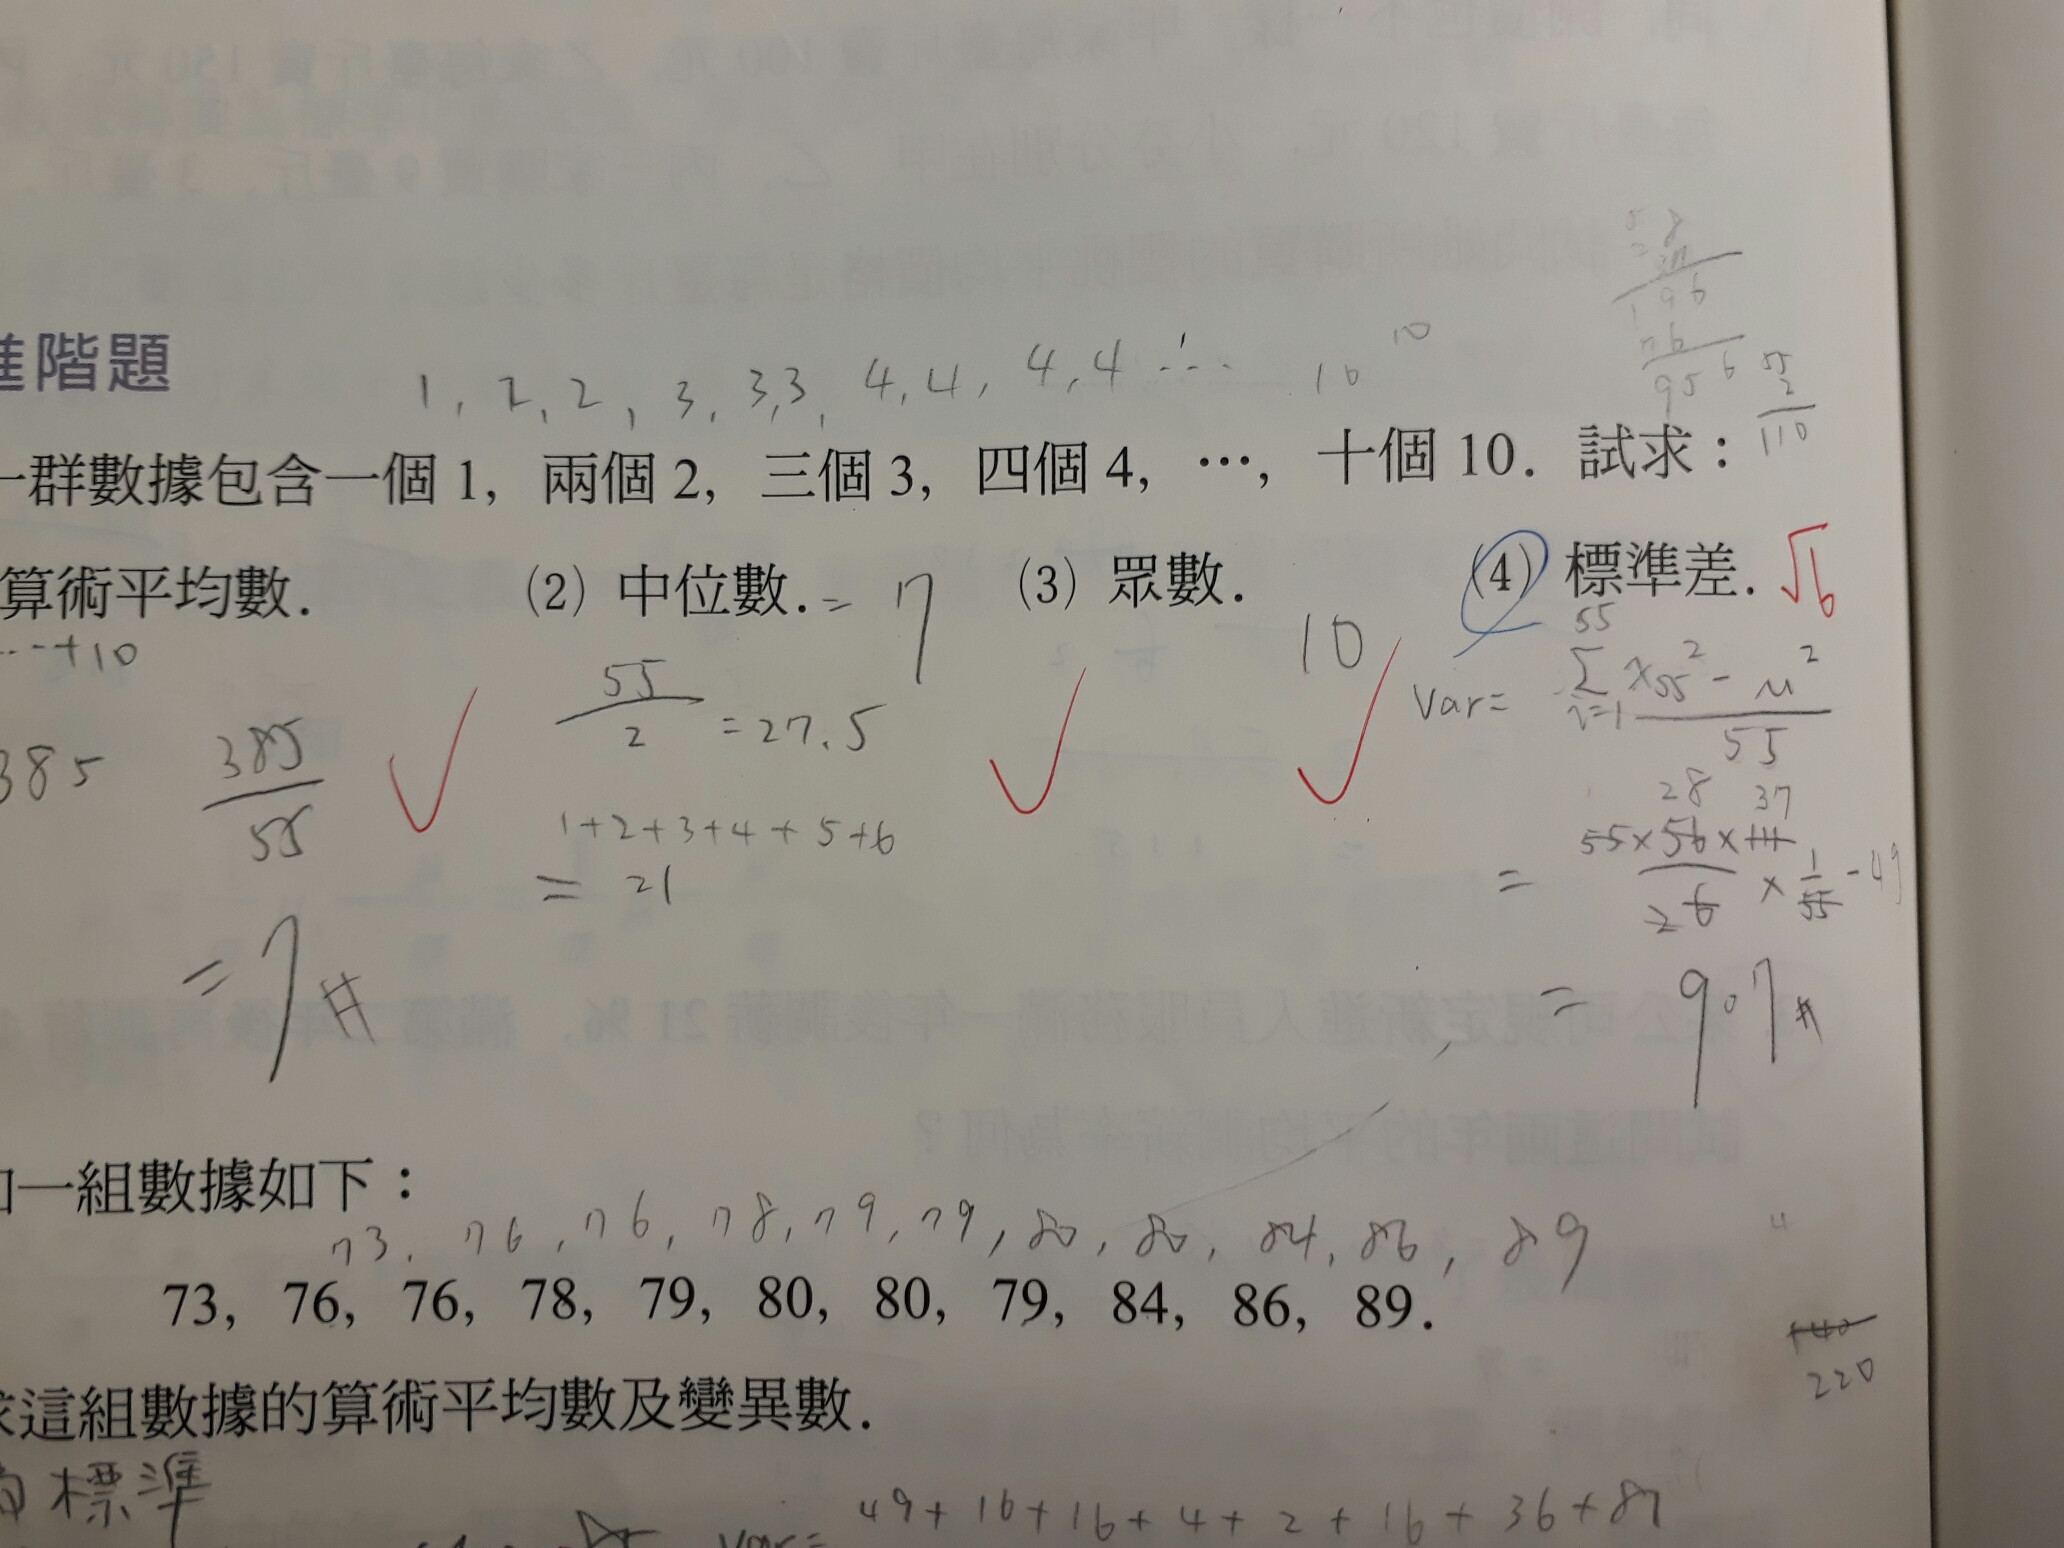 階題
1, 2, 2, 3, 3,3, 4,4, 4,4 ⋯ 10 10
一群數據包含一個 1, 兩個 2, 三個 3, 四個 4, ⋯, 十個 10. 試求:
算術平均數. (2) 中位數. = 7 (3) 眾數. 10 (4) 標準差. √6
⋯+10
385 385/55 55/2 = 27.5 Var= 55 Σ i=1 x55² - μ² / 55
1+2+3+4+5+6
= 21
= 7#
28 37
= 55×56×111 / 6 2 × 1/55 - 49
= 907#
55
2
110
一組數據如下:
73, 76, 76, 78, 79, 79, 80, 80, 84, 86, 89
73, 76, 76, 78, 79, 80, 80, 79, 84, 86, 89.
220
這組數據的算術平均數及變異數.
標準
49+16+16+4+2+16+36+81
Var=